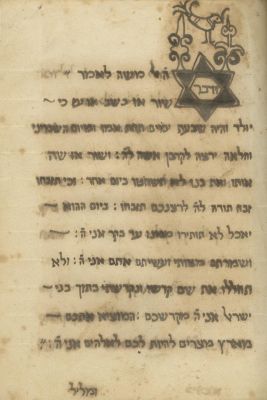 וידבר
ה׳ אל משה לאמר
שור או כשב או עז כי
יולד והיה שבעת ימים תחת אמו ומיום השמיני
והלאה ירצה לקרבן אשה לה׳: ושור או שה
אותו ואת בנו לא תשחטו ביום אחד: וכי תזבחו
זבח תודה לה׳ לרצנכם תזבחו: ביום ההוא
יאכל לא תותירו ממנו עד בקר אני ה׳:
ושמרתם מצותי ועשיתם אתם אני ה׳: ולא
תחללו את שם קדשי ונקדשתי בתוך בני
ישראל אני ה׳ מקדשכם: המוציא אתכם
מארץ מצרים להיות לכם לאלהים אני ה׳: